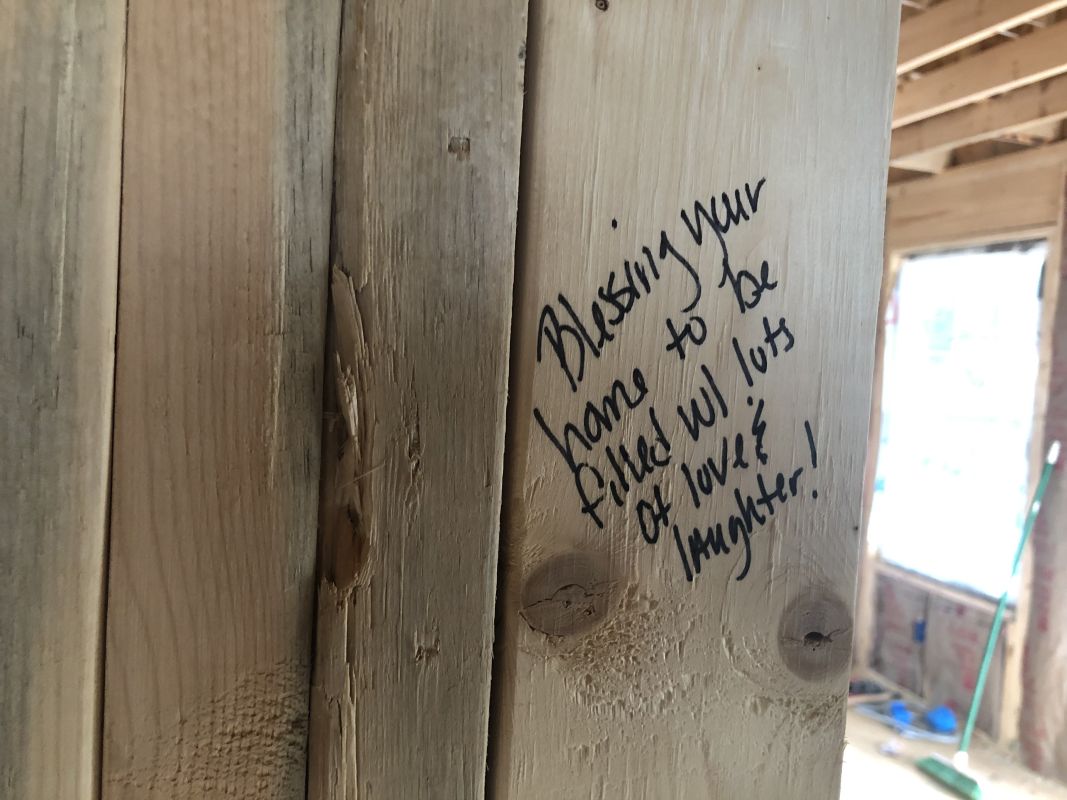 Blessing your
home to be
filled w/ lots
of love &
laughter!